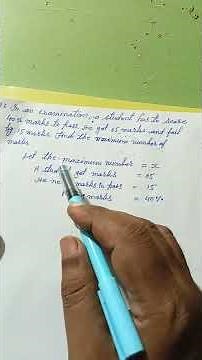 In an examination, a student has to score
40% marks to pass. He got 85 marks and fail
by 15 marks. Find the maximum number of
marks.
Let the maximum number = x
A student got marks = 85
He ne marks to pass = 15
marks = 40%